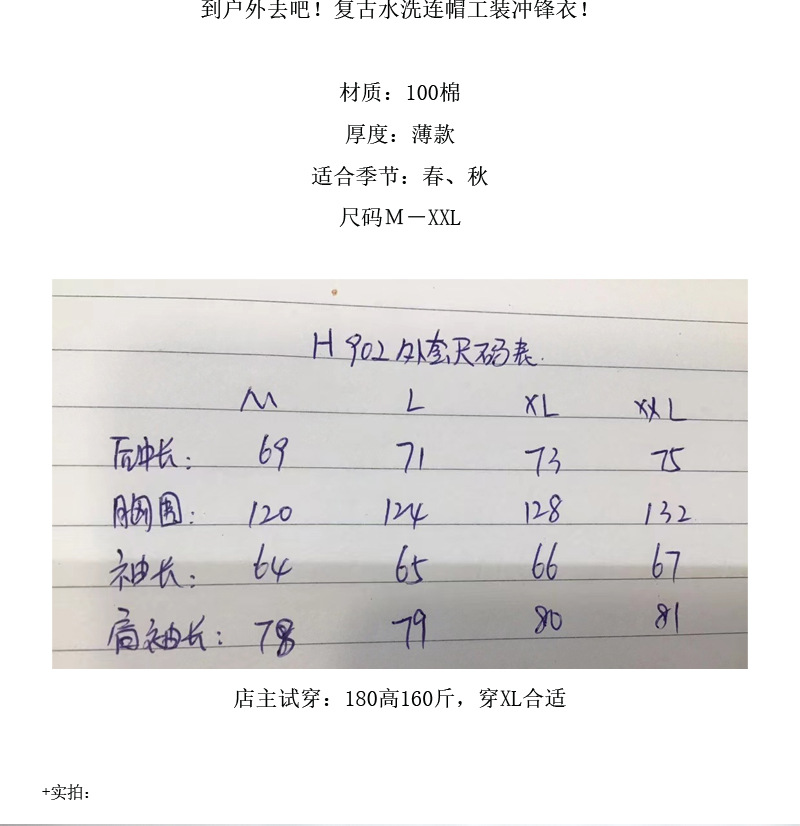 到户外去吧！复古水洗连帽工装冲锋衣！
材质：100棉
厚度：薄款
适合季节：春、秋
尺码M－XXL
H902外套尺码表.
M L XL XXL
后中长：69 71 73 75
胸围：120 124 128 132
袖长：64 65 66 67
肩袖长：78 79 80 81
店主试穿：180高160斤，穿XL合适
+实拍：